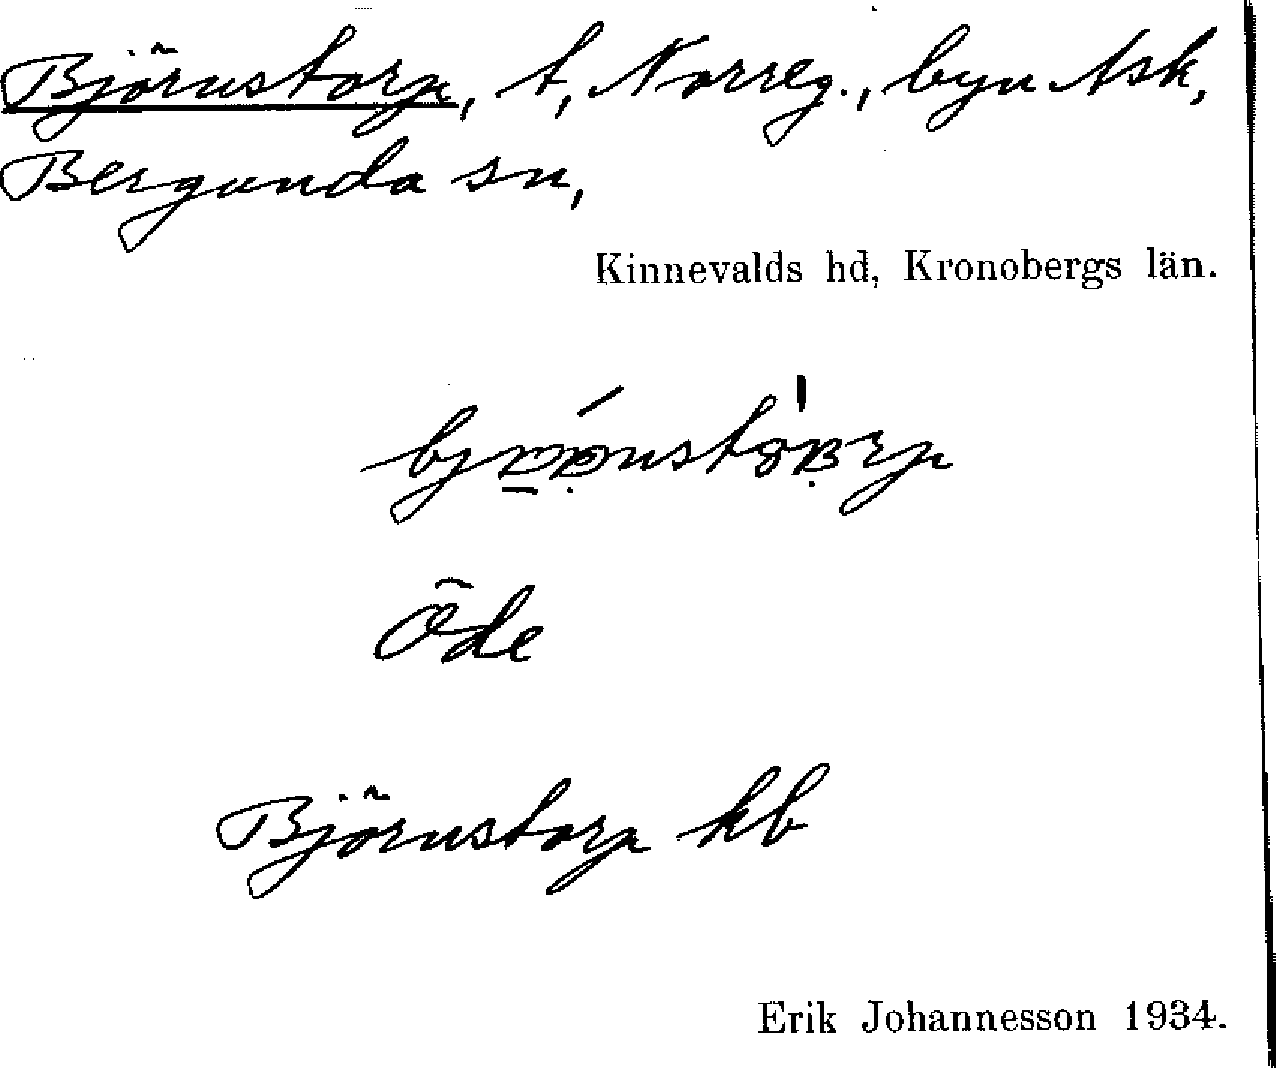 Björnstorp, t, Norreg., byn Ask,
Bergunda sn,
Kinnevalds hd, Kronobergs län.
Öde
Björnstorp kb
Erik Johannesson 1934.